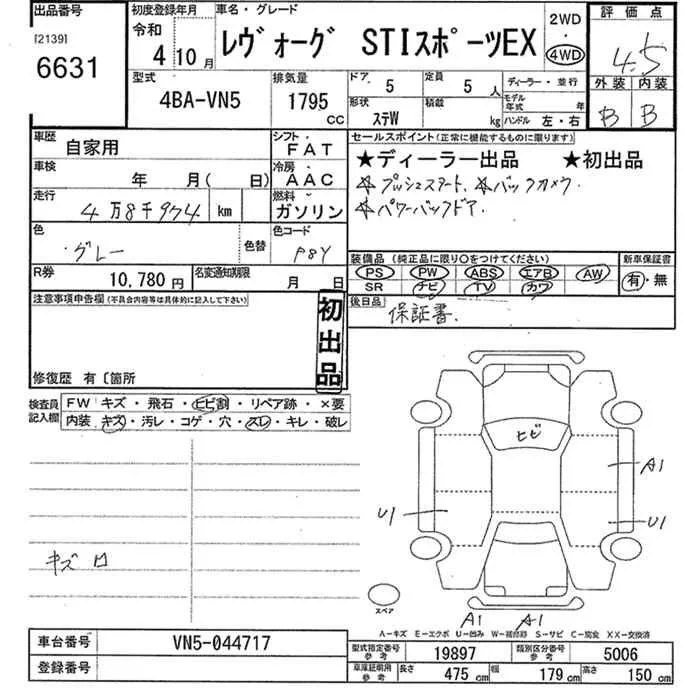 出品番号 初度登録年月 車名・グレード 2WD・4WD 評価点
[2139]
6631
令和 4年 10月
レヴォーグ STIスポーツEX
4.5
型式 排気量 ドア 5 定員 5人 ディーラー・並行 外装 内装
4BA-VN5 1795 cc 形状 ステW 積載 kg モデル年式 年 ハンドル 左・右 B B
車歴 自家用 シフト FAT セールスポイント(正常に機能するものに限ります)
★ディーラー出品 ★初出品
車検 年 月( 日) 冷房 AAC ☆プッシュスタート、☆バックカメラ、
走行 4万8千974 km 燃料 ガソリン ☆パワーバックドア、
色 グレー 色替 色コード P8Y
装備品(純正品に限り○をつけてください) 新車保証書
R券 10,780円 名変通知期限 月 日
PS PW ABS エアB AW 有・無
SR ナビ TV カワ
注意事項申告欄(不具合内容等は具体的に記入して下さい) 初出品 後日品 保証書.
修復歴 有〔箇所
検査員記入欄 FW キズ・飛石・ヒビ割・リペア跡・×要
内装 キズ・汚レ・コゲ・穴・スレ・キレ・破レ
ヒビ
A1
U1 U1
キズ
スペア
A1 A1
A-キズ E-エクボ U-凹み W-補修跡 S-サビ C-腐食 XX-交換済
車台番号 VN5-044717
型式指定番号 参考 19897 類別区分番号 参考 5006
登録番号
車庫証明用 参考 長さ 475cm 幅 179cm 高さ 150cm